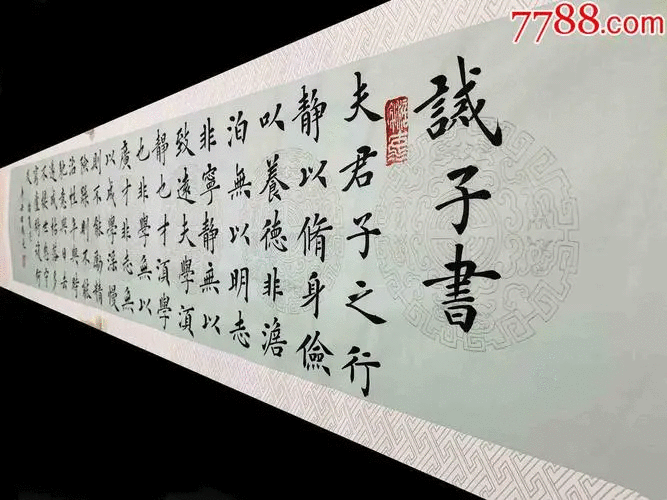 7788.com
誡子書
夫君子之行
静以脩身儉
以養德非澹
泊無以明志
非寧静無以
致遠夫學湏
静也才湏學
也非學無以
廣才非志無
以成學滛慢
則不能勵精
險躁則不能
冶性年與時
馳意與日去
遂成枯落多
不接世悲守
窮廬將復何
及